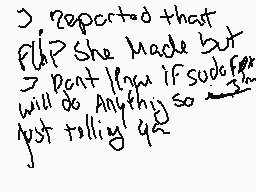 I reported that
FlIP She Made but
I Dont Know if sudofox
will do Anythig so
Just telling ya